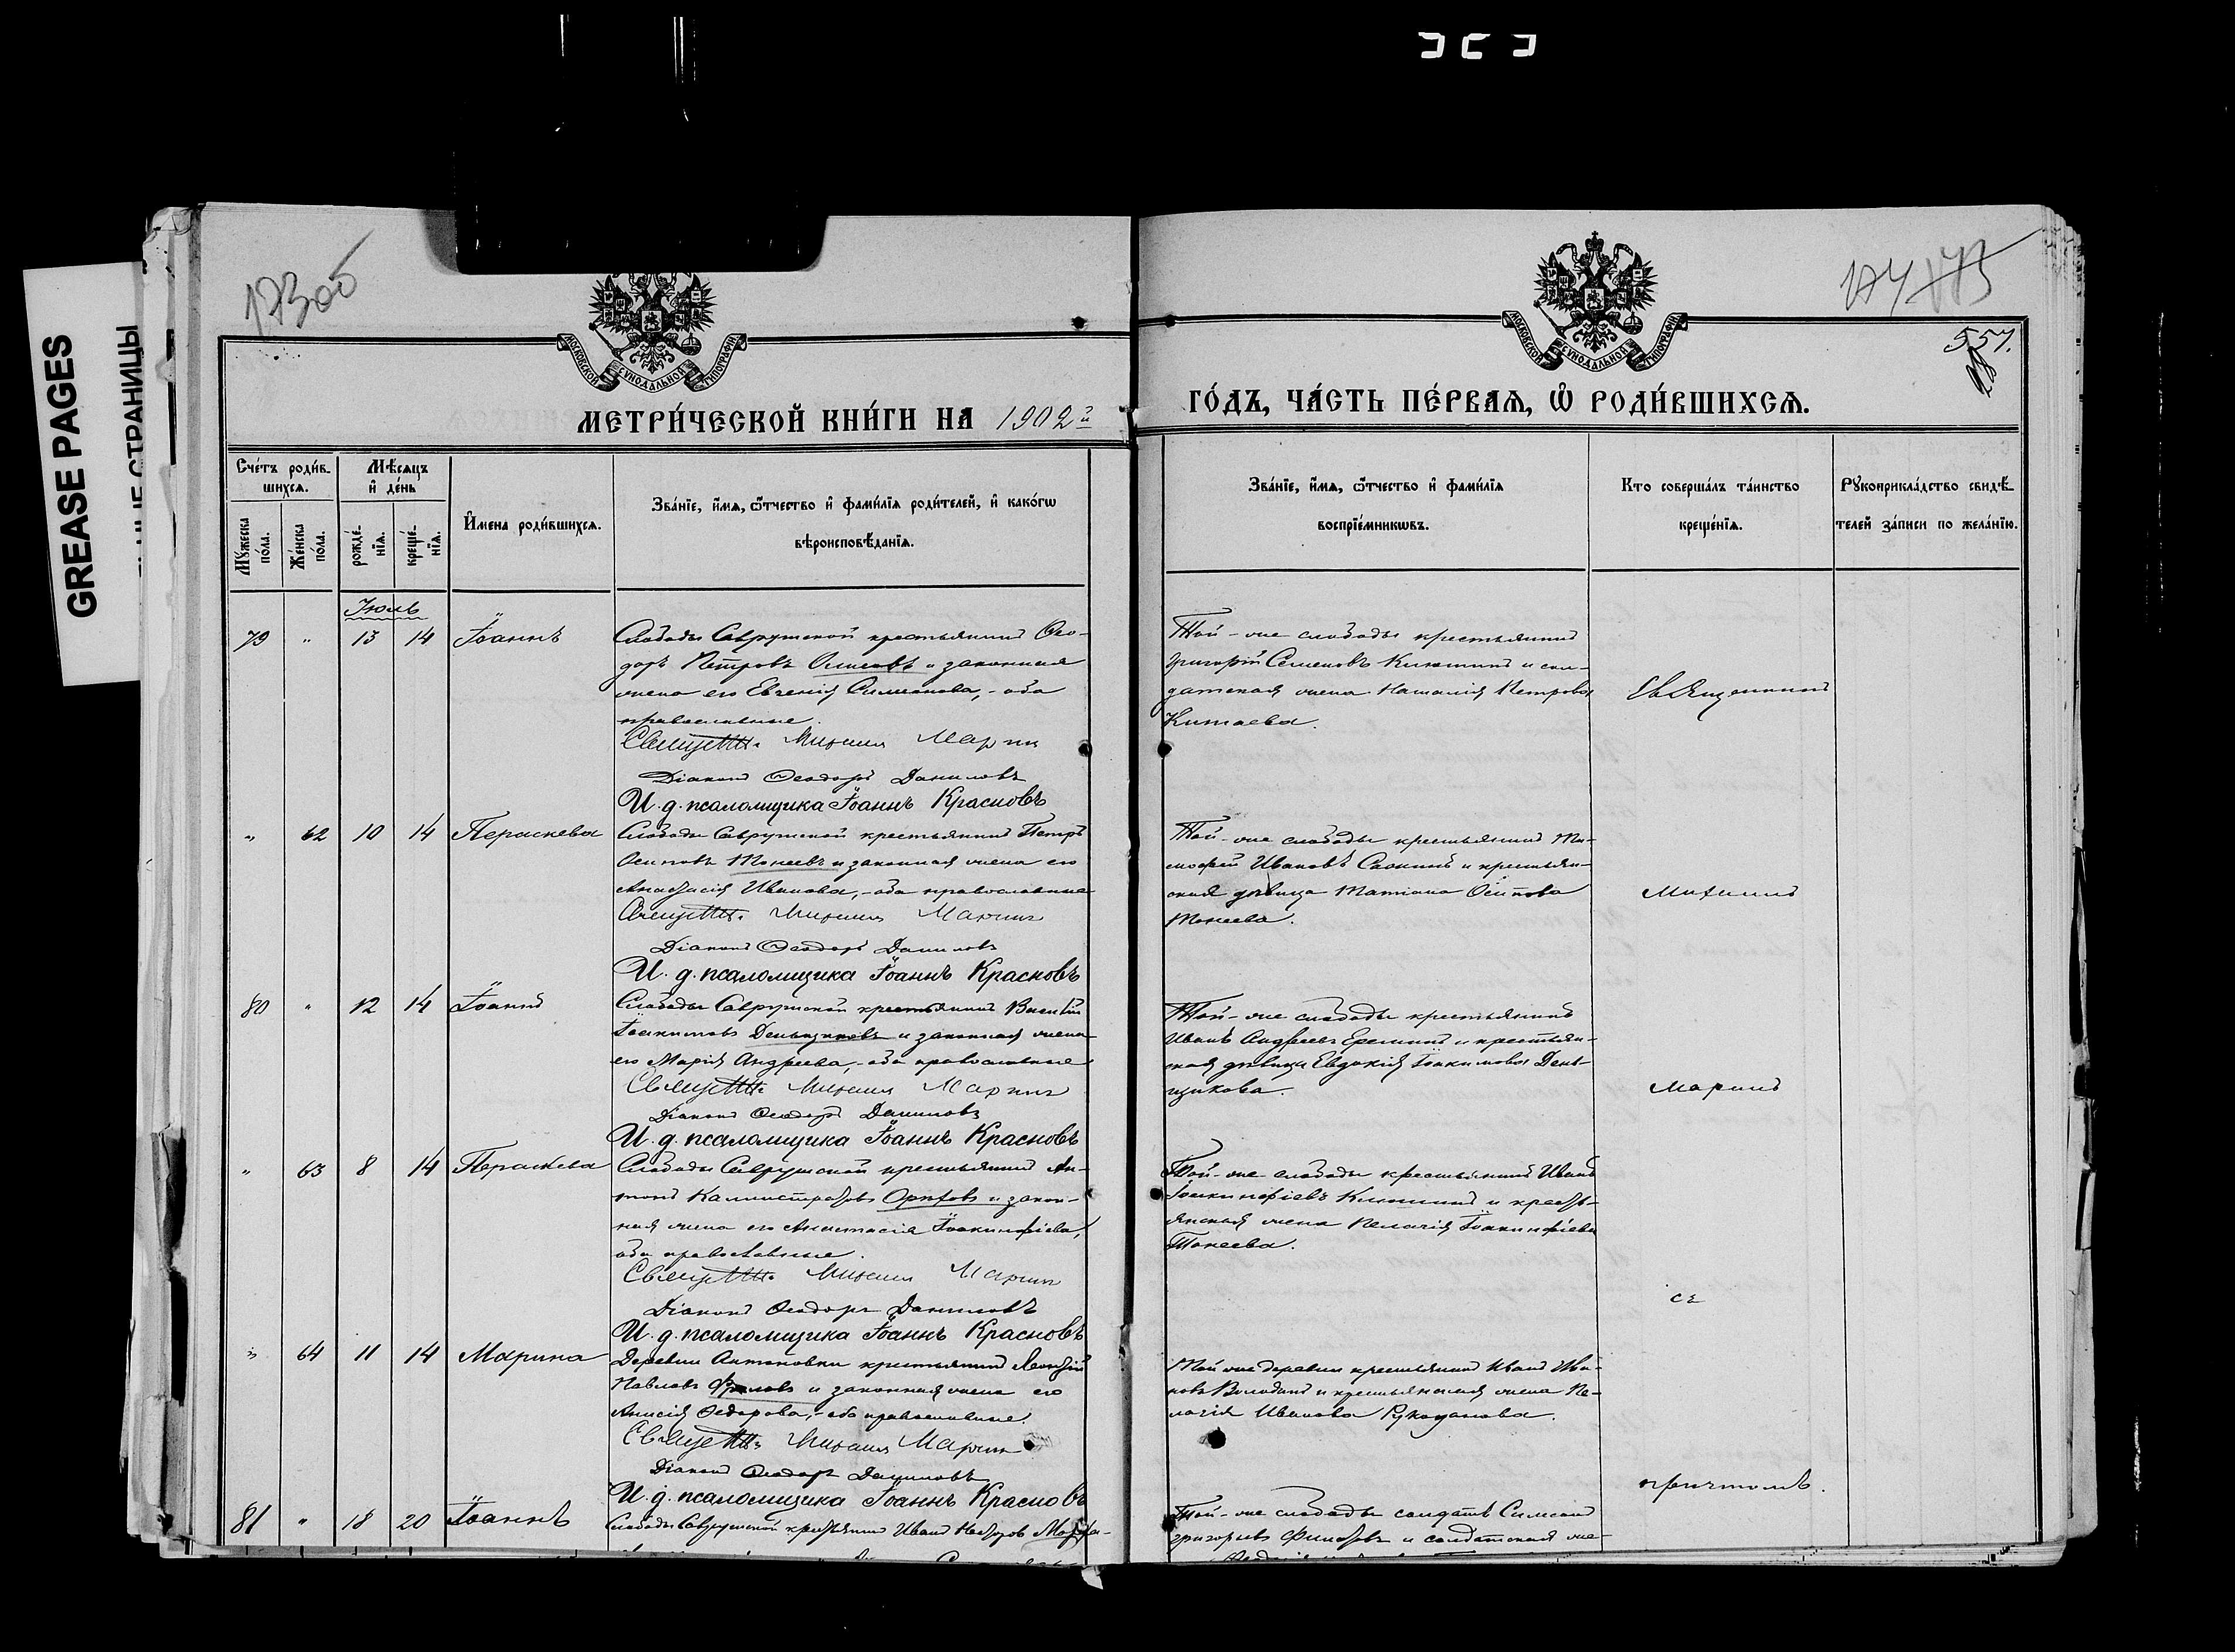 GREASE PAGES
СТРАНИЦЫ
173об
174
175
557.
МОСКОВСКОЙ СУНОДАЛЬНОЙ ТИПОГРАФИИ
МОСКОВСКОЙ СУНОДАЛЬНОЙ ТИПОГРАФИИ
МЕТРИ́ЧЕСКОЙ КНИ́ГИ НА 1902й
ГО́ДЪ, ЧА́СТЬ ПЕ́РВАѦ, Ѽ РОДИ́ВШИХСѦ.
Сче́тъ роди́в-
шихсѧ.
Мꙋ́жеска по́ла.
Же́нска по́ла.
Мѣ́сѧцъ
и҆ де́нь
рожде́-
нїѧ.
креще́-
нїѧ.
И҆́мена роди́вшихсѧ.
Зва́нїе, и҆́мѧ, ѻ҆́тчество и҆ фами́лїѧ роди́телей, и҆ како́гѡ
вѣроисповѣ́данїѧ.
Зва́нїе, и҆́мѧ, ѻ҆́тчество и҆ фами́лїѧ
воспрїе́мникѡвъ.
Кто соверша́лъ та́инство
креще́нїѧ.
Рꙋкоприкла́дство свидѣ́-
телей за́писи по жела́нїю.
Іюль
79 " 13 14 Іоаннъ
Слободы Саврушской крестьянинъ Ѳео-
доръ Петровъ и законная
жена его Евгенія Симеонова, - оба
православные.
Священ. Михаил Марин
Діаконъ Ѳеодоръ Даниловъ
И. д. псаломщика Іоаннъ Красновъ
Той-же слободы крестьянинъ
Григорій Семеновъ Клюшинъ и сол-
датская жена Наталія Петрова
Китаева.
Священникъ
" 62 10 14 Параскева
Слободы Саврушской крестьянинъ Петръ
Осиповъ Мокеевъ и законная жена его
Анастасія Иванова, - оба православные
Священ. Михаил Марин
Діаконъ Ѳеодоръ Даниловъ
И. д. псаломщика Іоаннъ Красновъ
Той-же слободы крестьянинъ Ти-
моѳей Ивановъ и крестьян-
ская дѣвица Татіана Осипова
Мокеева.
Михаилъ
80 " 12 14 Іоаннъ
Слободы Саврушской крестьянинъ Василій
Іоакимовъ Деньщиковъ и законная жена
его Марія Андреева, - оба православные
Священ. Михаил Марин
Діаконъ Ѳеодоръ Даниловъ
И. д. псаломщика Іоаннъ Красновъ
Той-же слободы крестьянинъ
Иванъ Андреевъ Ереминъ и крестьян-
ская дѣвица Евдокія Іоакимова День-
щикова.
Маринъ
" 63 8 14 Параскева
Слободы Саврушской крестьянинъ Ан-
тонъ Каллистратовъ и закон-
ная жена его Анастасія Іоакинфіева,
оба православные.
Священ. Михаил Марин
Діаконъ Ѳеодоръ Даниловъ
И. д. псаломщика Іоаннъ Красновъ
Той-же слободы крестьянинъ Иванъ
Іоакинфіевъ Клюшинъ и кресть-
янская жена Пелагія Іоакинфіева
Мокеева.
съ
" 64 11 14 Марина
Деревни Антоновки крестьянинъ Леонтій
Павловъ Фроловъ и законная жена его
Анисія Ѳедорова, - оба православные.
Священ. Михаил Марин
Діаконъ Ѳеодоръ Даниловъ
И. д. псаломщика Іоаннъ Красновъ
Той же деревни крестьянинъ Иванъ Ива-
новъ Володинъ и крестьянская жена Пе-
лагія Иванова
причтомъ.
81 " 18 20 Іоаннъ
Слободы Саврушской крестьянинъ Иванъ Несторовъ
Той-же слободы солдатъ Симеонъ
Григорьевъ и солдатская же-